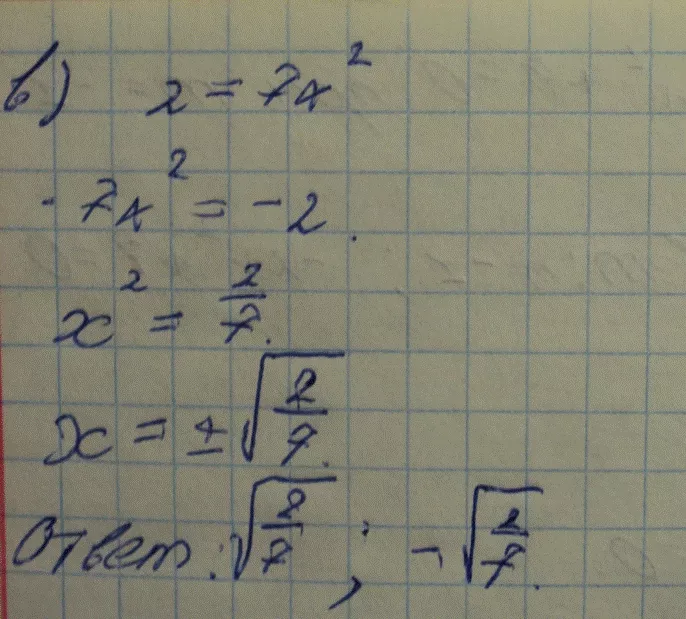 в) 2 = 7x²
- 7x² = - 2.
x² = 2/7.
x = ± √(2/7).
Ответ: √(2/7) ; - √(2/7).